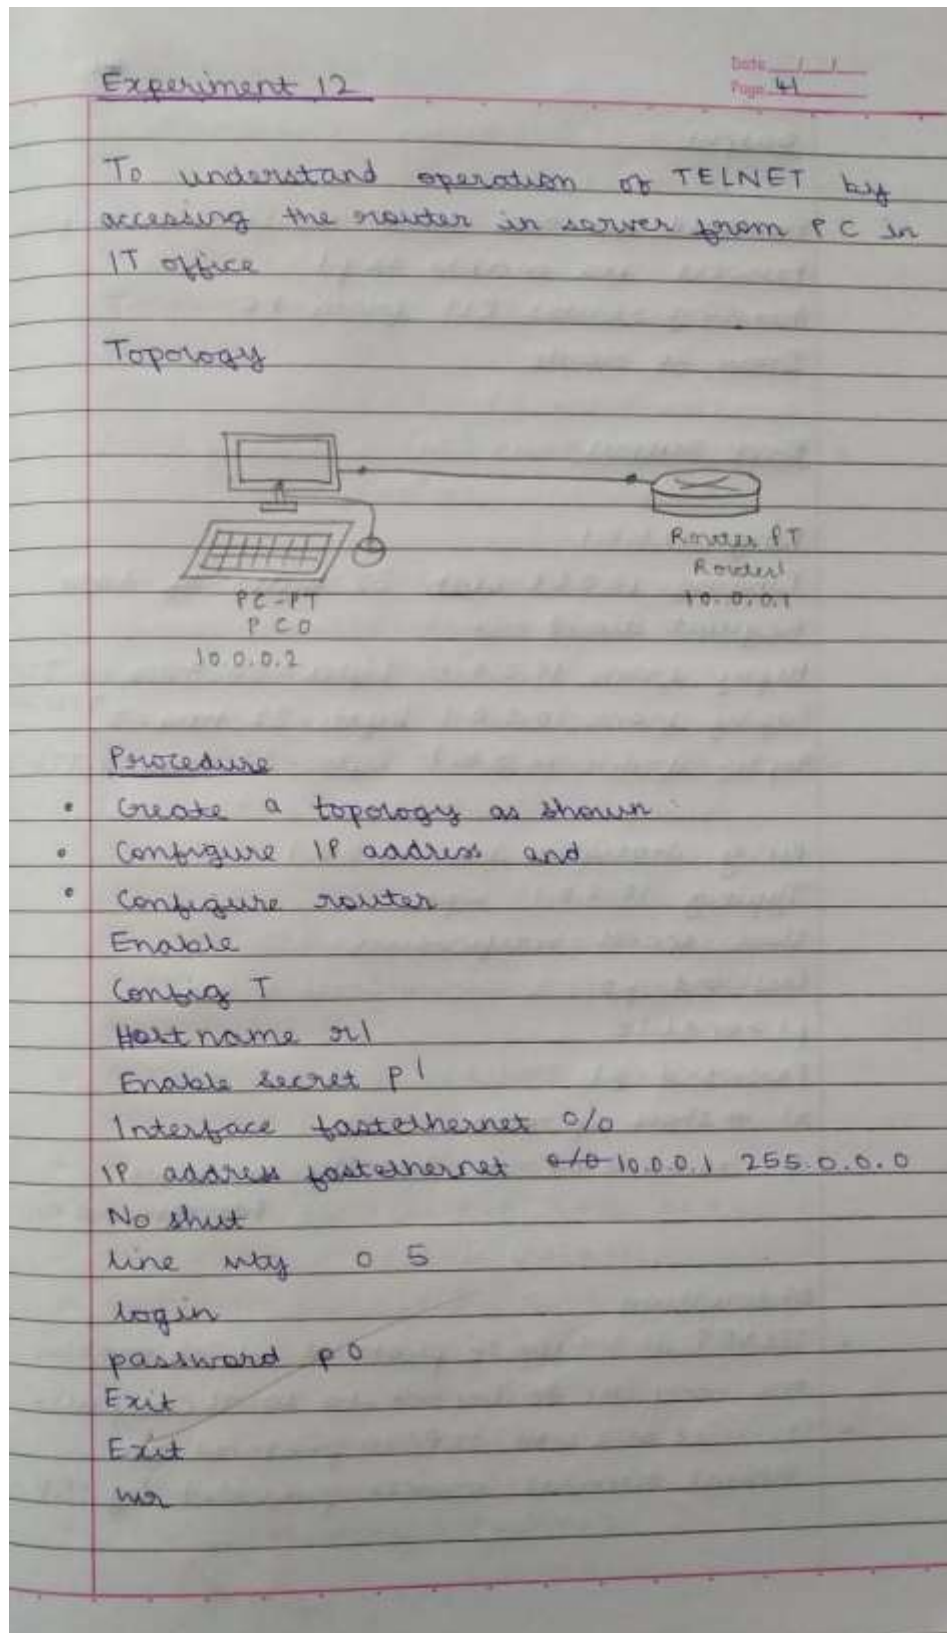 Experiment 12
Date __/__/__
Page 41
To understand operation of TELNET by
accessing the router in server from PC in
IT office
Topology
PC-PT
PC0
10.0.0.2
Router PT
Router1
10.0.0.1
Procedure
• Create a topology as shown.
• Configure IP address and
• Configure router
Enable
Config T
Hostname r1
Enable secret p1
Interface fastethernet 0/0
IP address fastethernet 0/0 10.0.0.1 255.0.0.0
No shut
line vty 0 5
login
password p0
Exit
Exit
wr